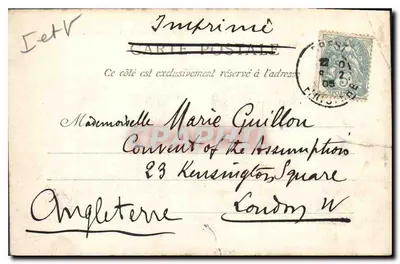 I et V
Imprimé
CARTE POSTALE
Ce côté est exclusivement réservé à l'adresse
Mademoiselle Marie Guillon
Convent of the Assumption
23 Kensington Square
London W
Angleterre